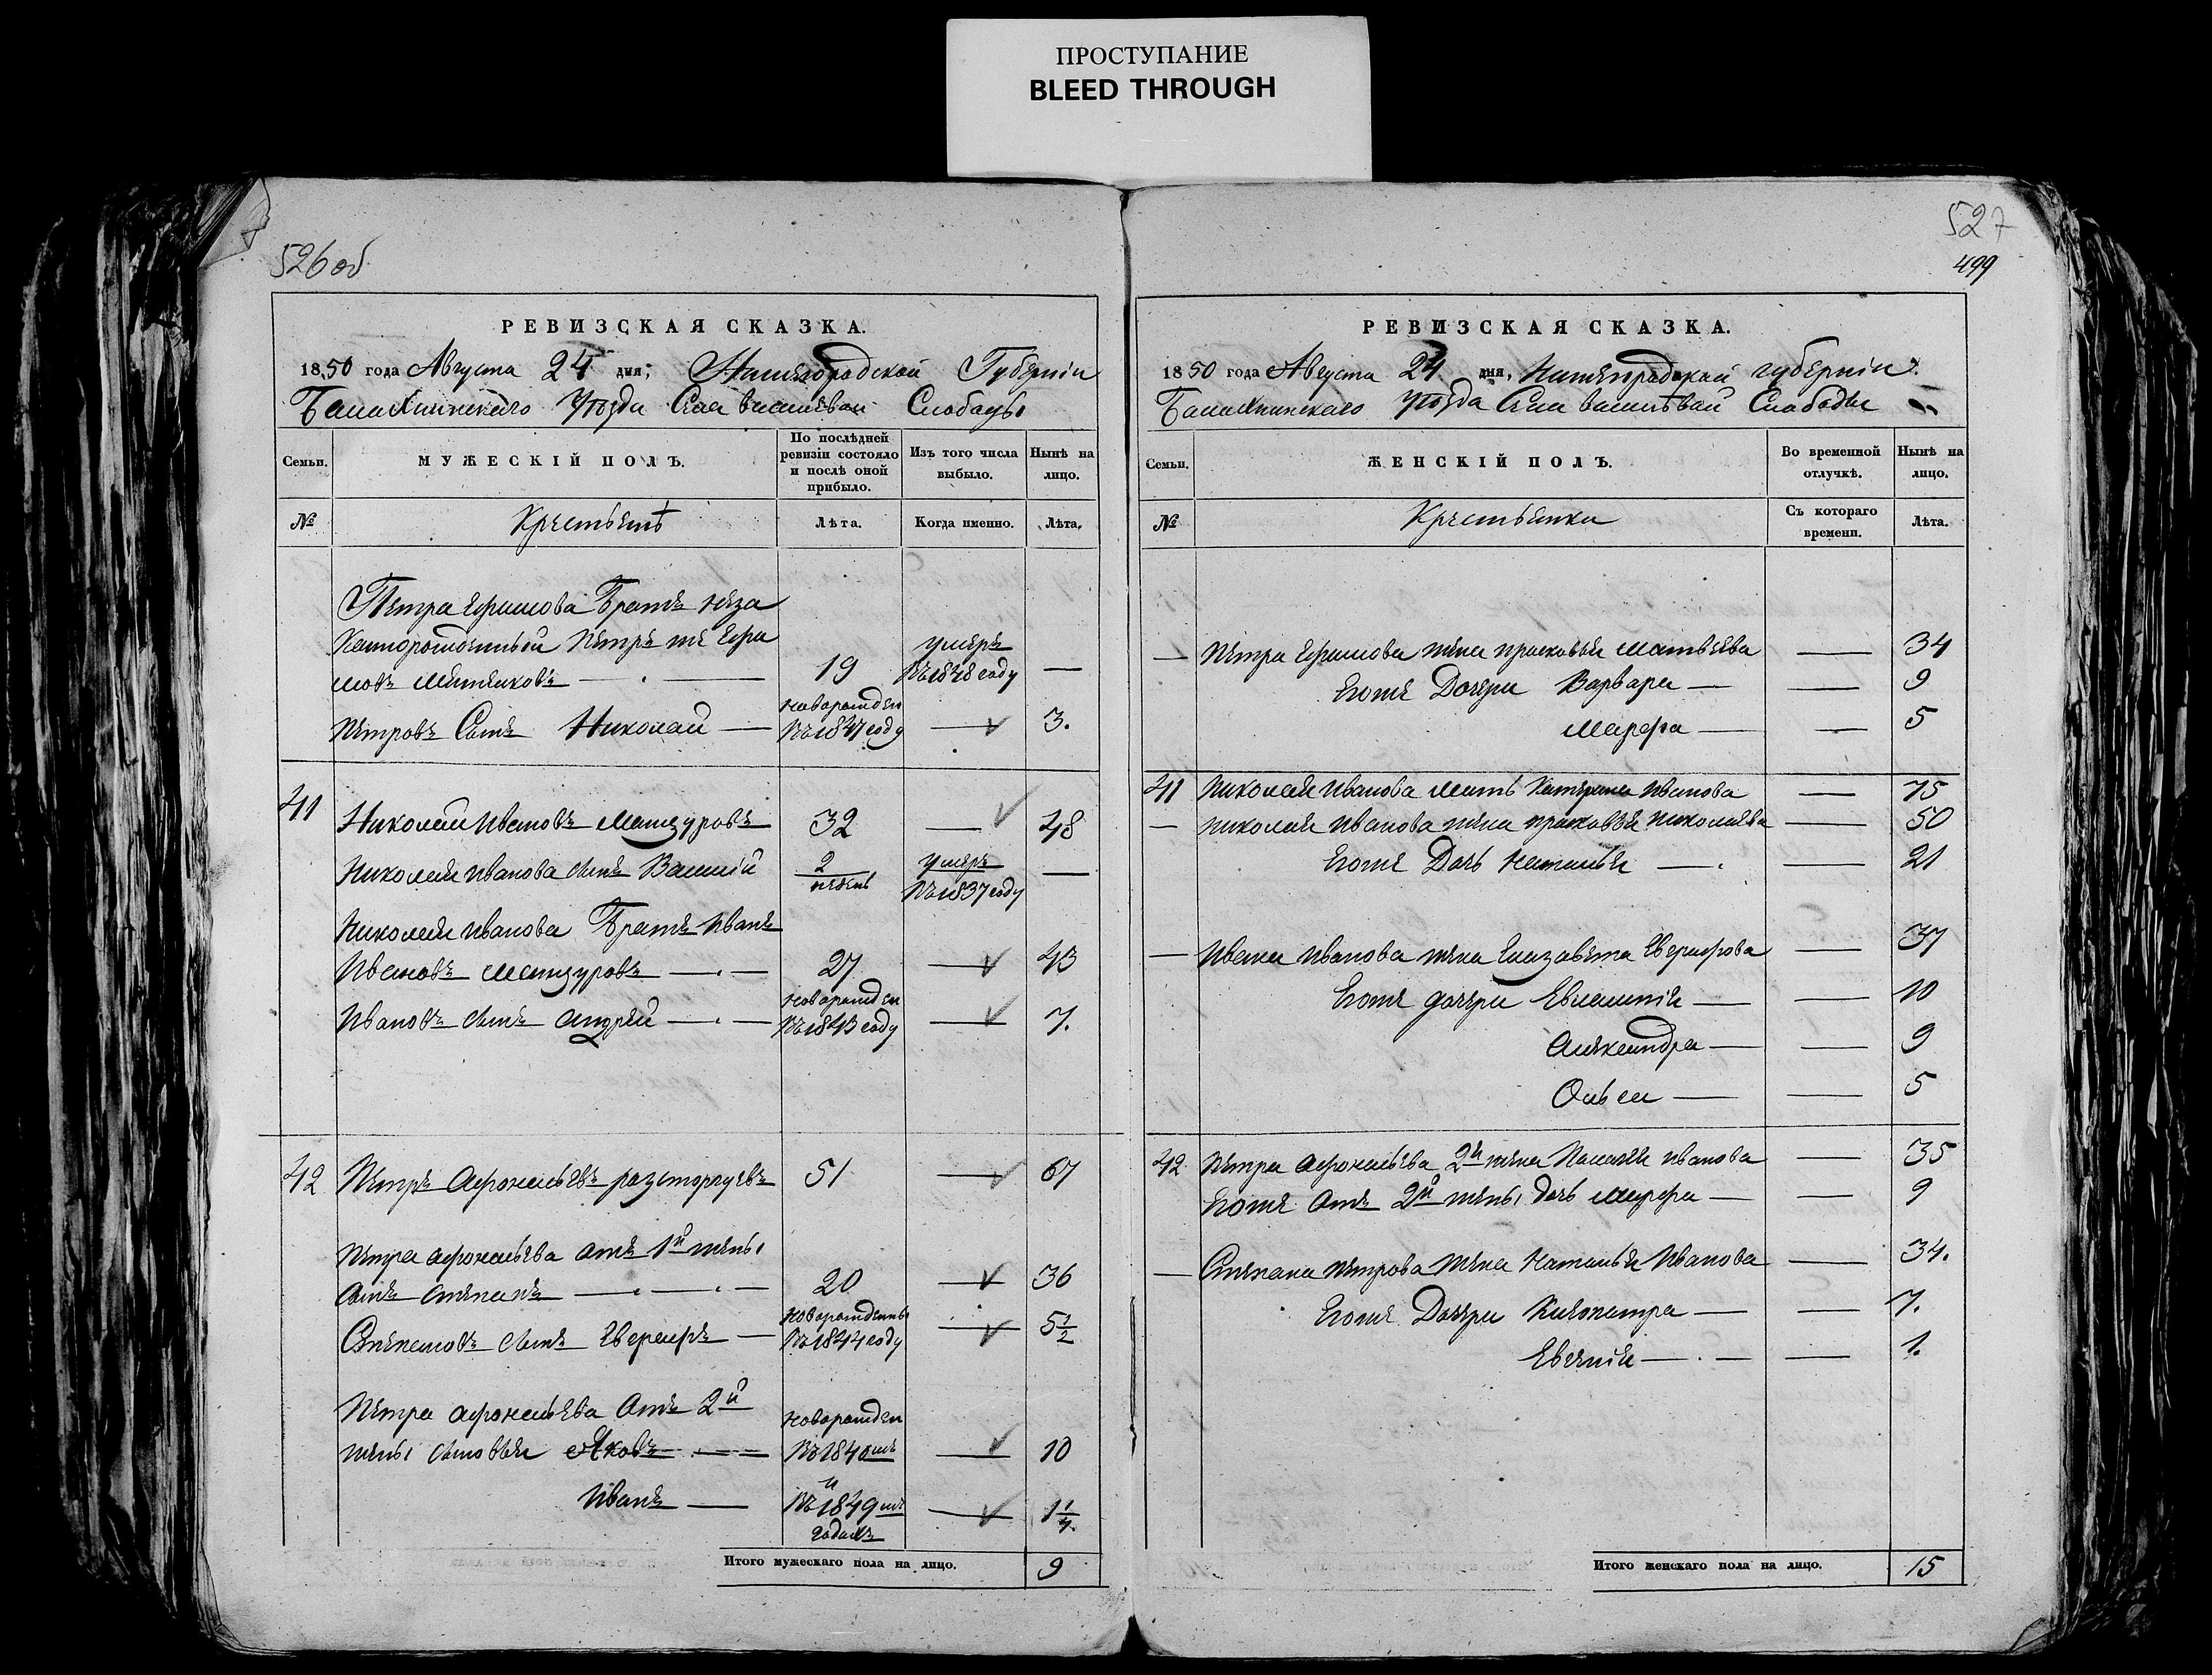 ПРОСТУПАНИЕ
BLEED THROUGH
526 об
РЕВИЗСКАЯ СКАЗКА.
1850 года Августа 24 дня, Нижегородской Губернiи
Балахнинскаго Уѣзда Села василѣвой Слободы
Семьи. МУЖЕСКІЙ ПОЛЪ. По послѣдней ревизіи состояло и послѣ оной прибыло. Изъ того числа выбыло. Нынѣ на лицо.
№ Крестьянѣ Лѣта. Когда именно. Лѣта.
Петра Ефимова Братъ
Петръ же Ефи умеръ
мовъ 19 въ 1848 году —
новорожден
Петровъ Сынъ Николай — въ 1847 году — 3.
41 Николай Ивановъ Манзуровъ 32 — 48
Николая Иванова сынъ Василiй 2 недели умеръ въ 1837 году —
Николая Иванова Братъ Иванъ
Ивановъ Манзуровъ — 27 — 43
новорожден
Ивановъ сынъ Андрей — въ 1843 году — 7.
42 Петръ Афонасьевъ разторгуевъ 51 — 67
Петра Афонасьева отъ 1й жены
сынъ Степанъ — 20 — 36
новорожденны
Степановъ сынъ Евграфъ — въ 1844 году — 5 1/2
Петра Афонасьева Отъ 2й новорожден
жены сыновья Яковъ — въ 1840мъ — 10
и
Иванъ — въ 1849мъ — 1 1/4.
годахъ
Итого мужескаго пола на лицо. 9
527
499
РЕВИЗСКАЯ СКАЗКА.
1850 года Августа 24 дня, Нижегородской губернiи
Балахнинскаго Уѣзда Села василѣвой Слободы
Семьи. ЖЕНСКІЙ ПОЛЪ. Во временной отлучкѣ. Нынѣ на лицо.
№ Крестьянки Съ котораго времени. Лѣта.
— Петра Ефимова жена прасковья матвѣева — 34
Егоже Дочери Варвара — — 9
Марфа — — 5
41 Николая Иванова мать Катерина Иванова — 75
— николая Иванова жена прасковья николаева — 50
Егоже Дочь Наталья — — 21
— Ивана Иванова жена Елизавета Евграфова — 37
Егоже дочери Евлампiя — — 10
Александра — — 9
Ольга — — 5
42 Петра Афонасьева 2й жена Палагея Иванова — 35
Егоже Отъ 2й жены дочь Марфа — — 9
— Степана Петрова Жена Наталья Иванова — 34.
Егоже Дочери Клеопатра — — 7.
Евгенiя — — 1.
Итого женскаго пола на лицо. 15